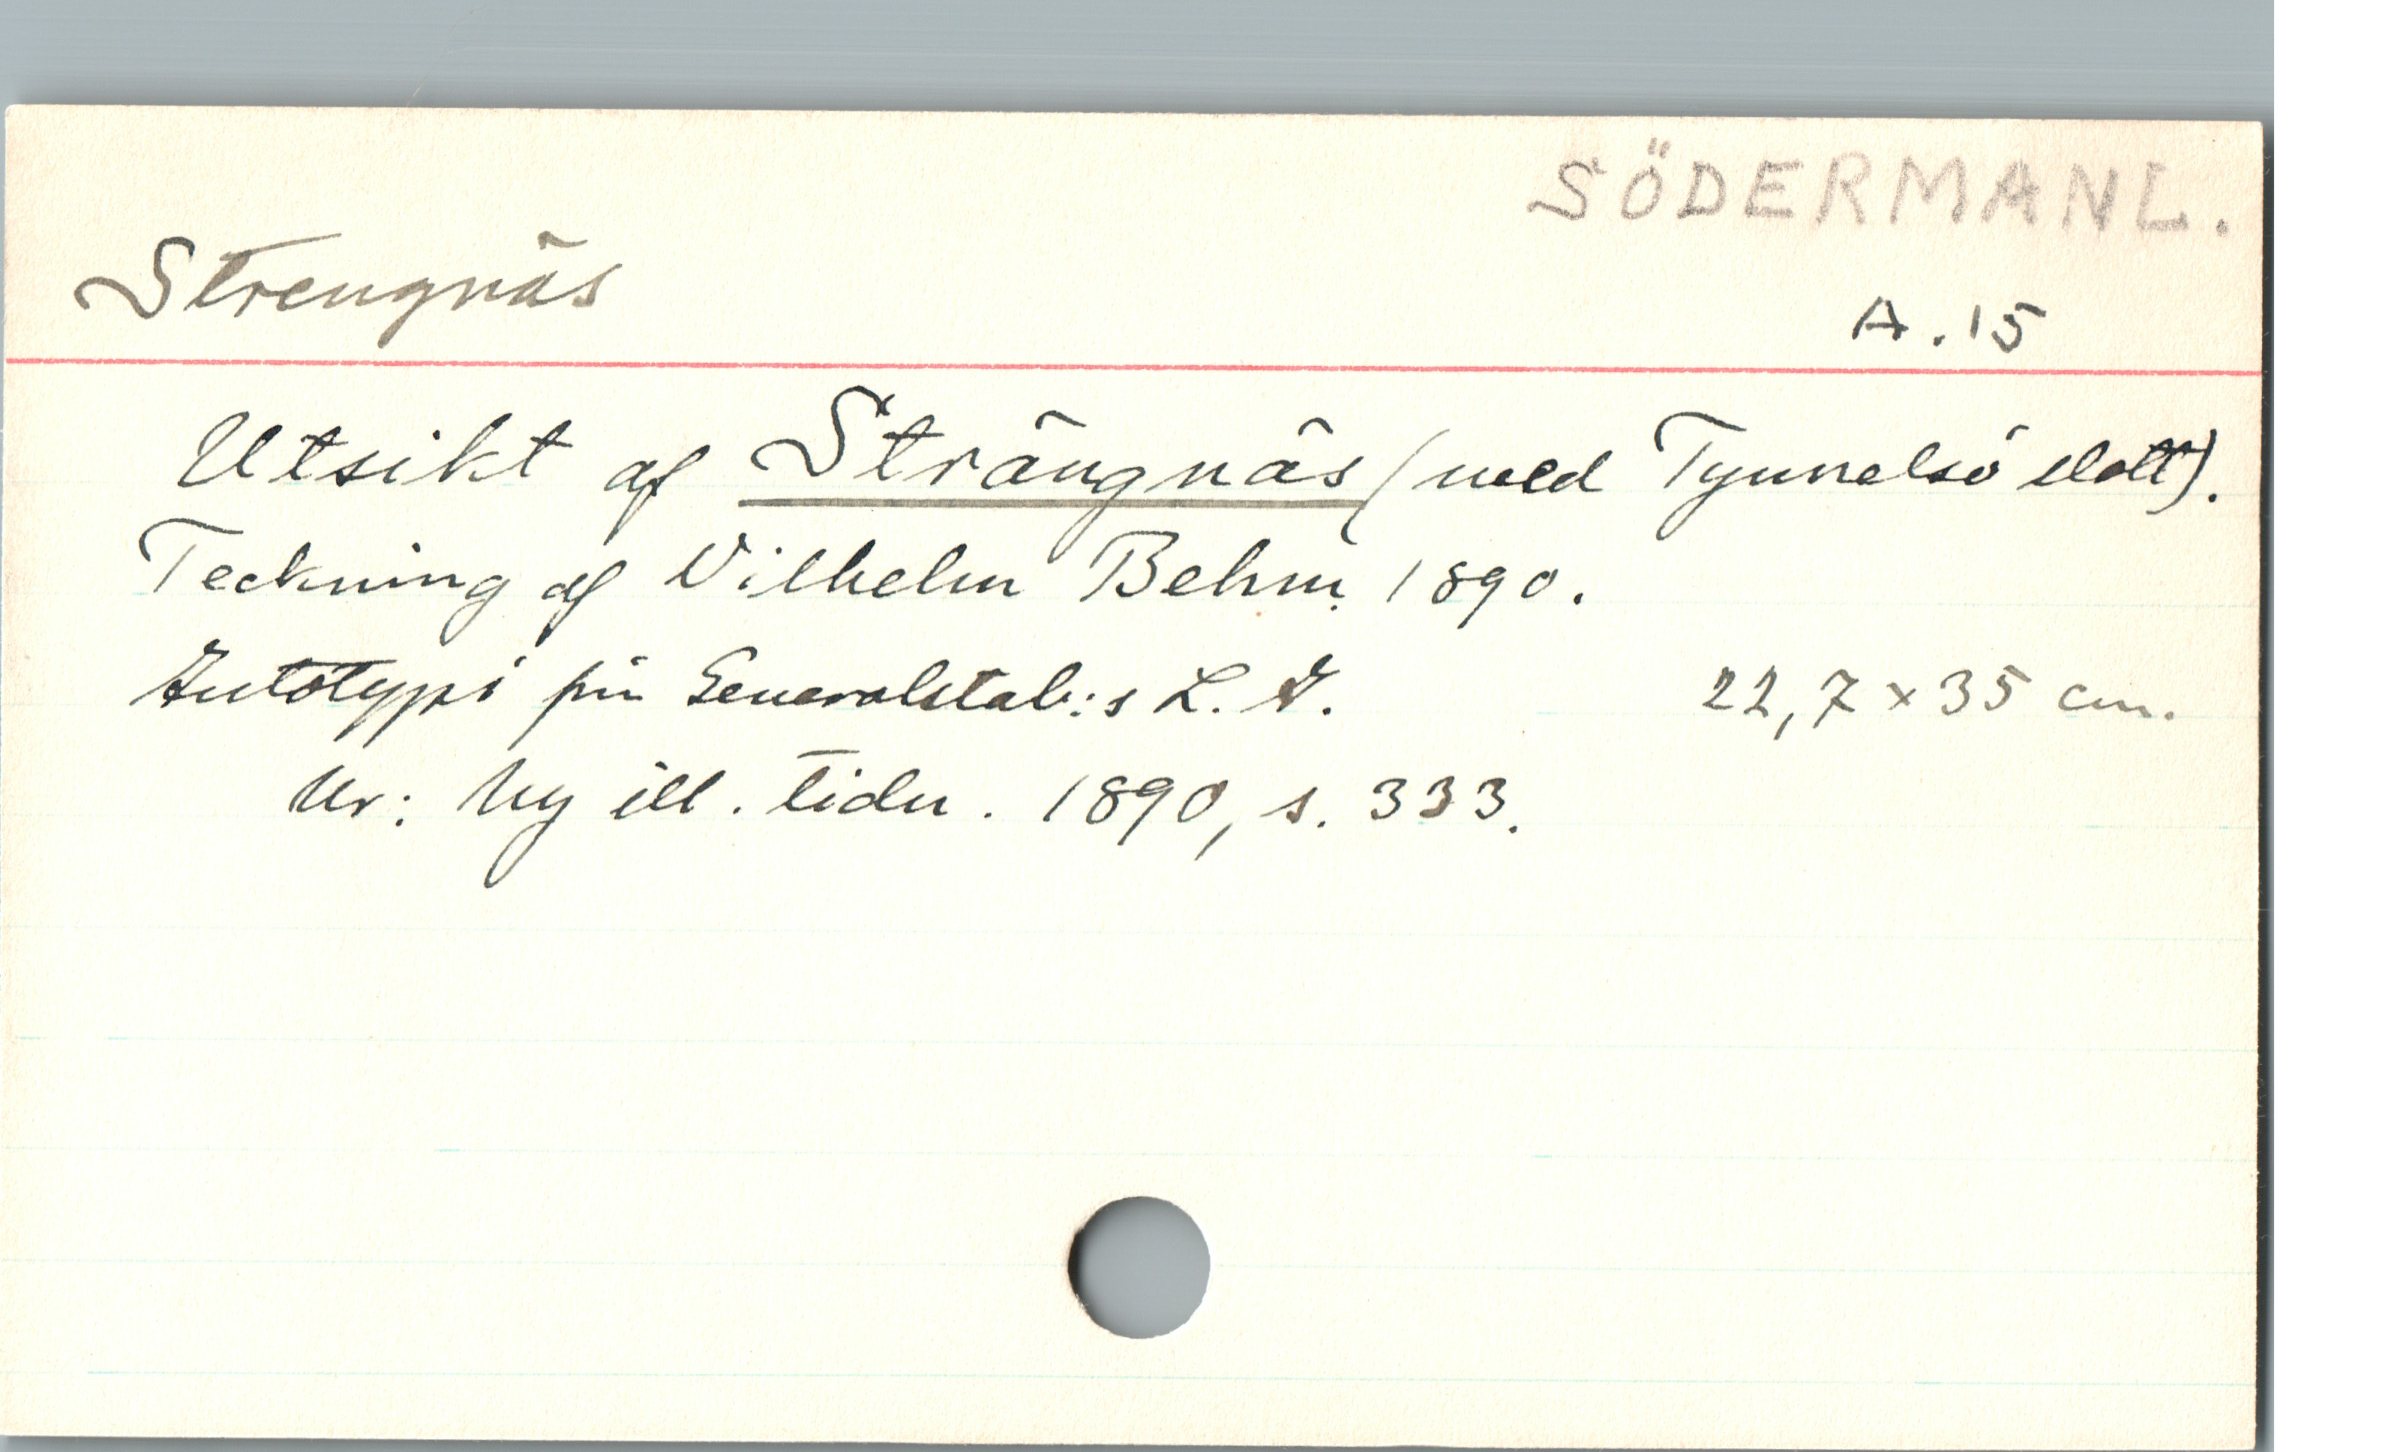 SÖDERMANL.
Strengnäs
A.15
Utsikt af Strängnäs (med Tynnelsö slott).
Teckning af Vilhelm Behm. 1890.
Autotypi från Generalstab:s L. A. 22,7 x 35 cm.
Ur: Ny ill. tidn. 1890, s. 333.